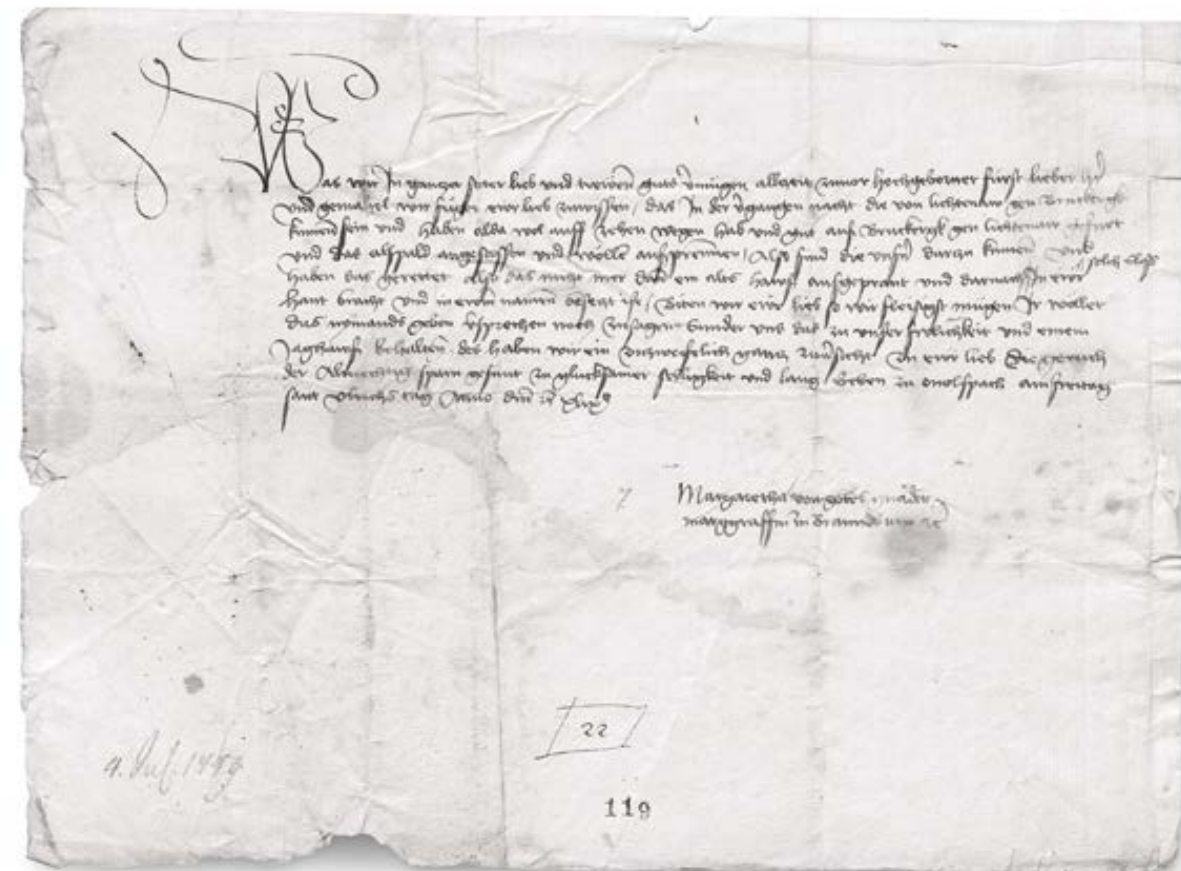 Was wir In ganczer steter lieb vnd trewen guts vermugen allczeit zuuor Hochgeborner furst lieber herr
vnd gemahel wir fugen ewr lieb zuwissen / das In der vergangen nacht die von lichtenaw gen Bruckbergk
kumen sein vnd haben alda wol auff zehen wegen hab vnd gut auß Bruckbergk gen lichtenaw gefurt
vnd das alspald angestossen vnd wollen außprennen / Also sind die vnsern darzu kumen vnd
solch sloss
haben das gerettet also das nicht mer dann ein altz hawß außgeprant vnd darnach In ewr
hant bracht vnd in ewrm namen besetzt ist / Biten wir ewr lieb so wir fleissigst mugen Ir wollet
das nymands geben versprechen noch zusagen Sunder vns das zu vnser frolichkeit vnd einem
Jaghawß behalten des haben wir ein vnzweyfelich gantz zuuersicht zu ewr lieb Die geruch
der Almechtig sparn gesunt zu glucksamer seligkeit vnd lang leben zu onolspach am freitag
sant Vlrichs tag Anno dni etc xlix
Margaretha von gotes gnaden
marggraffin zu Brandenburg etc
4. Jul. 1449
22
119